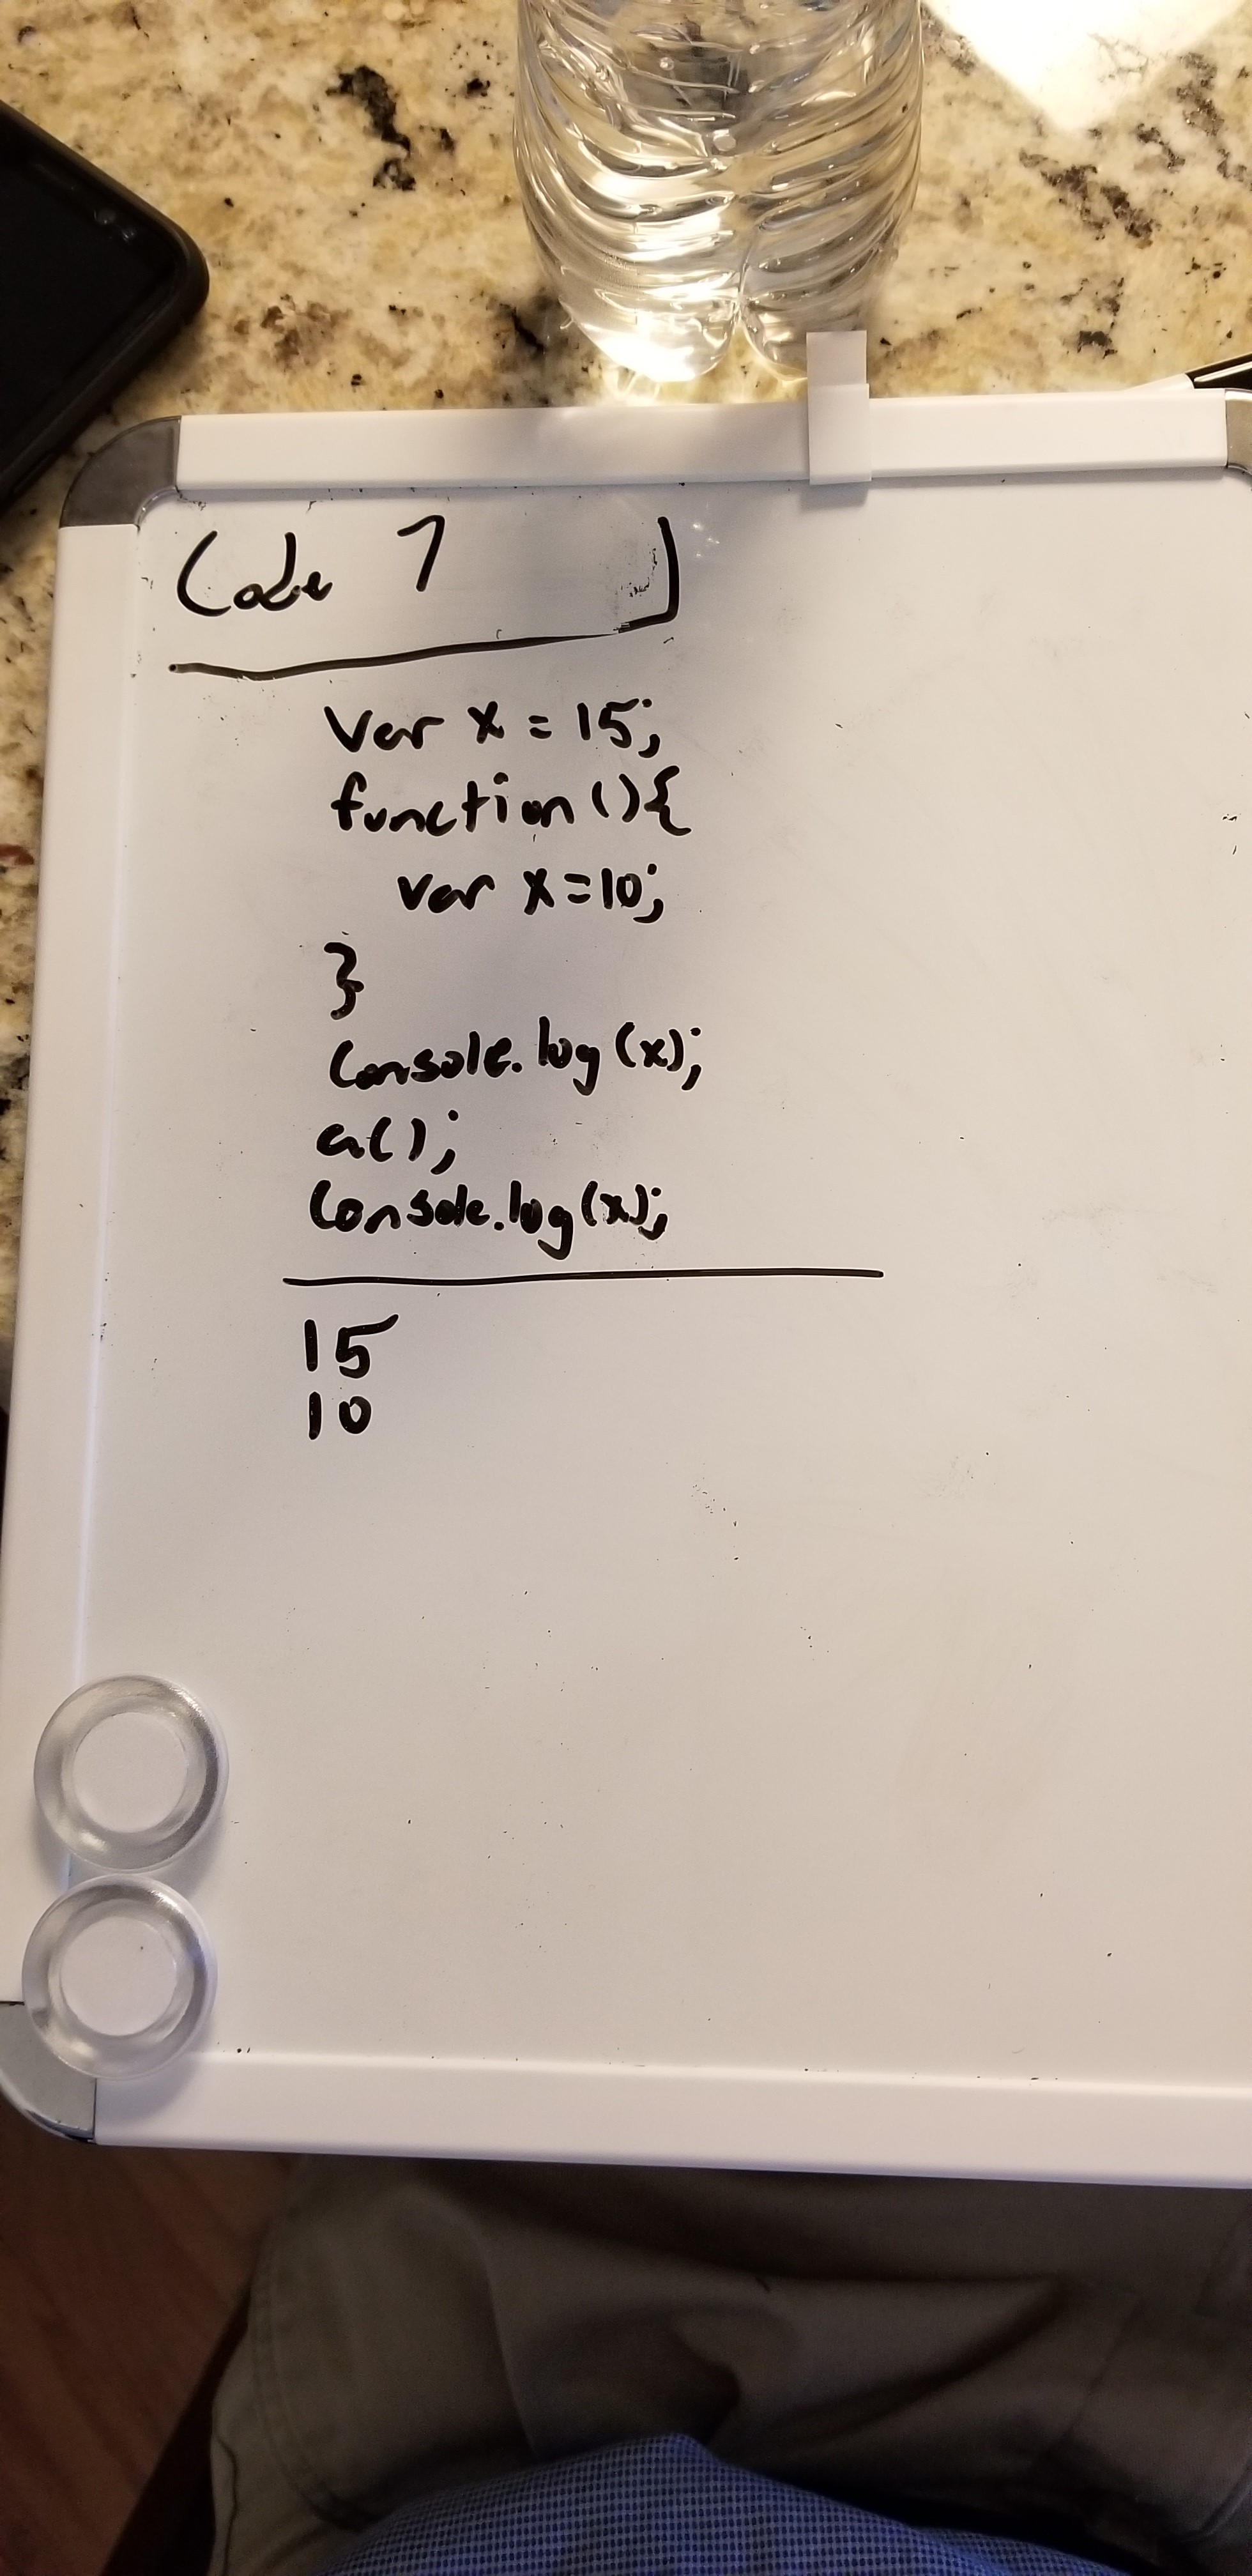 Code 7
var x = 15;
function (){
var x=10;
}
console.log(x);
a();
console.log(x);
15
10